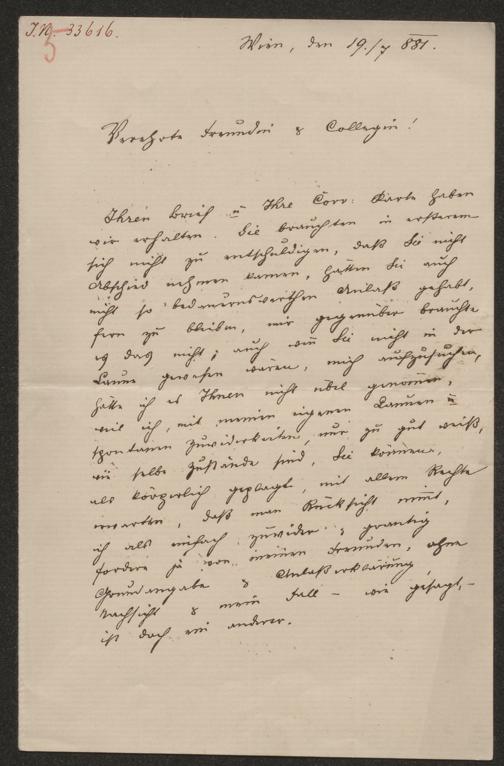 J.N. 33616.
5
Wien, den 19./7 881.
Verehrte Freundin & Collegin!
Ihren Brief u Ihre Corr: Karte haben
wir erhalten. Sie brauchten in ersterem
sich nicht zu entschuldigen, daß Sie nicht
Abschied nehmen kamen, hätten Sie auch
nicht so bedauernswerthen Anlaß gehabt,
fern zu bleiben, mir gegenüber brauchte
es das nicht; auch wenn Sie nicht in der
Laune gewesen wären, mich aufzusuchen,
hätte ich es Ihnen nicht übel genommen,
weil ich, mit meinen eigenen Launen u
spontanen Zuwiderkeiten, nur zu gut weiß,
wie selbe Zustände sind, Sie können,
als körperlich geplagt, mit allem Rechte
erwarten, daß man Rücksicht nimt,
ich als einfach zuwider & grantig
fordere ja von meinen Freunden, ohne
Grundangabe & Anlaßerklärung
Nachsicht & mein Fall – wie gesagt, –
ist doch ein anderer.